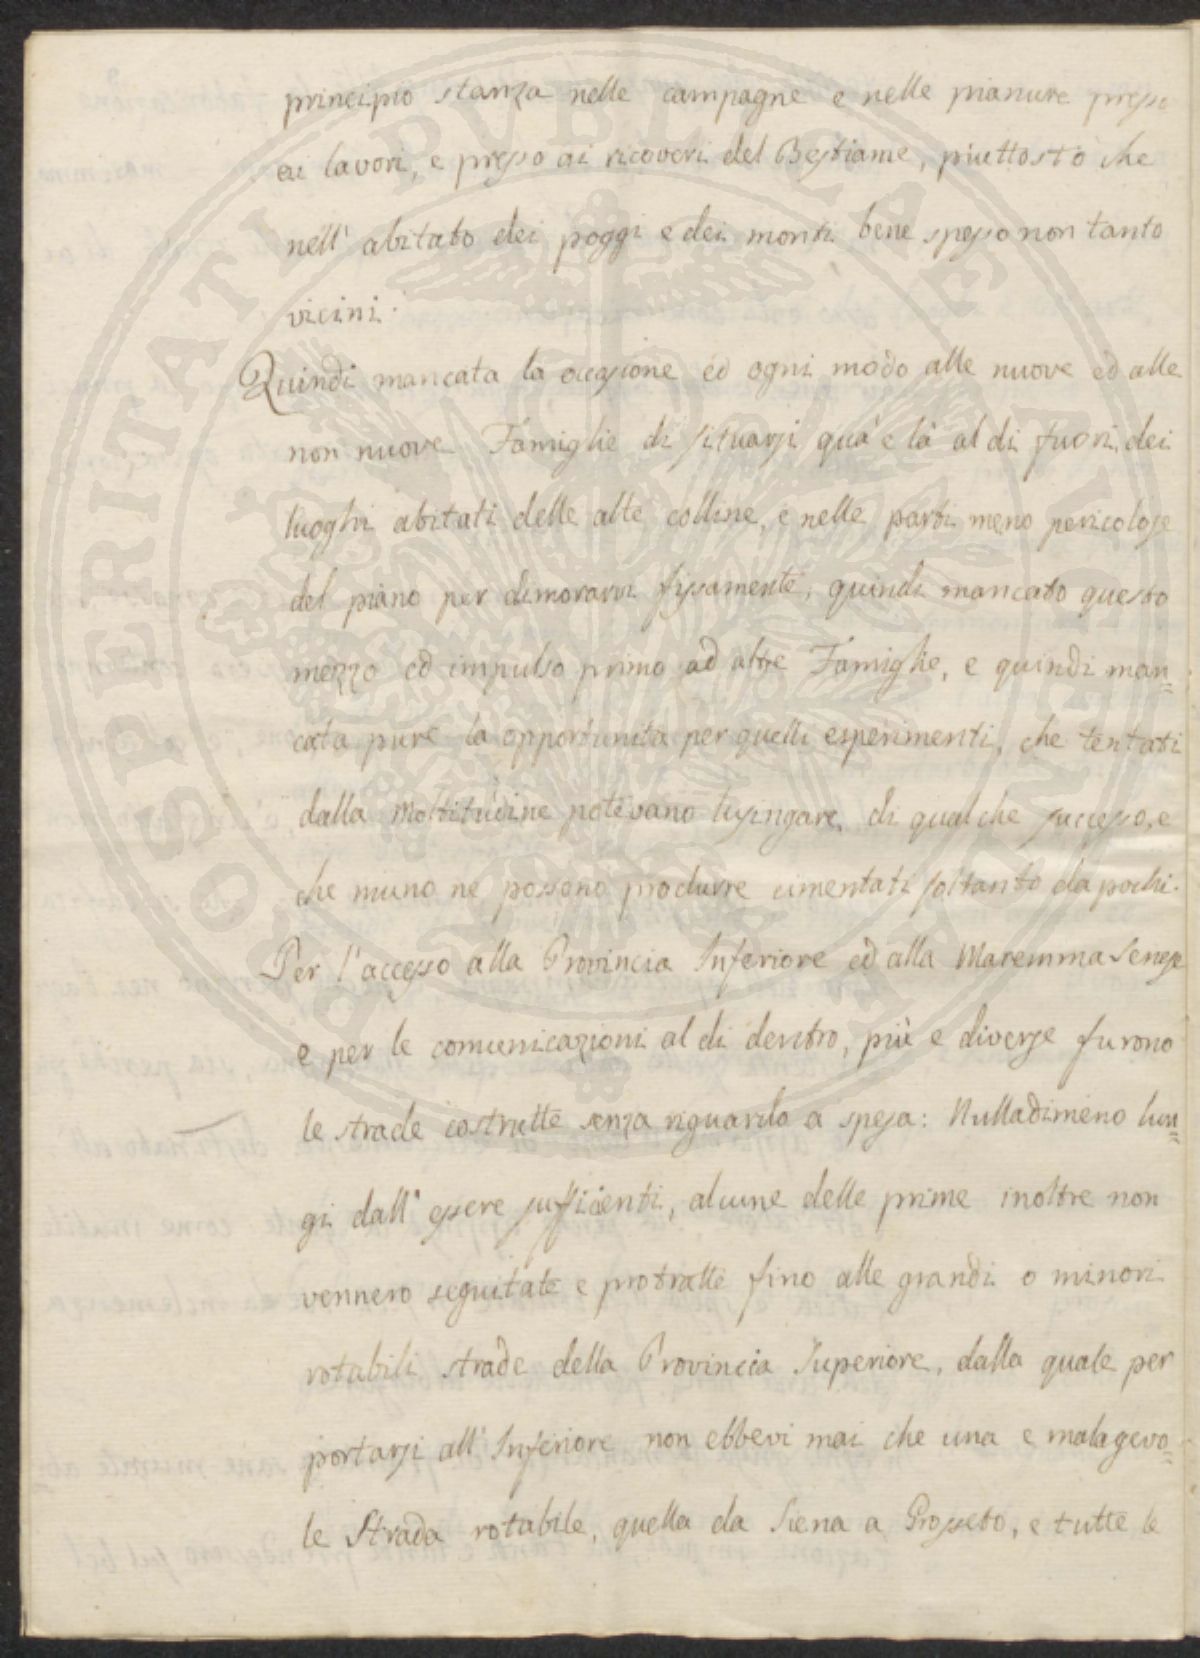 principio stanza nelle campagne e nelle pianure presso
ai lavori, e presso ai ricoveri del Bestiame, piuttosto che
nell' abitato dei poggi e dei monti bene spesso non tanto
vicini.
Quindi mancata la occasione ed ogni modo alle nuove ed alle
non nuove Famiglie di situarsi quà e là al di fuori dei
luoghi abitati delle alte colline, e nelle parti meno pericolose
del piano per dimorarvi fissamente, quindi mancato questo
mezzo ed impulso primo ad altre Famiglie, e quindi man=
cata pure la opportunita per quelli esperimenti, che tentati
dalla Moltitudine potevano lusingare di qualche successo, e
che niuno ne possono produrre cimentati soltanto da pochi.
Per l'accesso alla Provincia Inferiore ed alla Maremma Senese
e per le comunicazioni al di dentro, più e diverse furono
le strade costrutte senza riguardo a spesa: Nulladimeno lun=
gi dall' essere sufficienti, alcune delle prime inoltre non
vennero seguitate e protratte fino alle grandi o minori
rotabili strade della Provincia Superiore, dalla quale per
portarsi all' Inferiore non ebbevi mai che una e malagevo=
le Strada rotabile, quella da Siena a Grosseto, e tutte le
PROSPERITATI PVBLICAE AVGENDAE